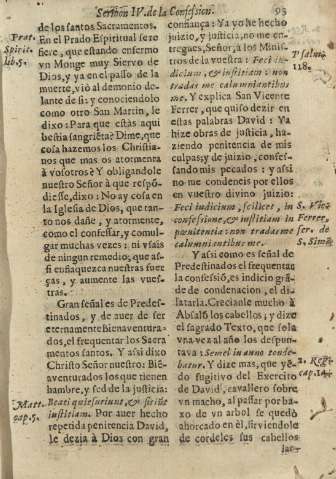 Sermon IV. de la Confession. 93
de los santos Sacramentos.
En el Prado Espiritual se re
fiere, que estando enfermo
vn Monge muy Siervo de
Dios, y ya en el passo de la
muerte, viò al demonio de-
lante de si: y conociendolo
como otro San Martin, le
dixo: Para que estàs aqui
bestia sangrieta? Dime, que
cosa hazemos los Christia-
nos que mas os atormenta
à vosotros? Y obligandole
nuestro Señor à que respõ-
diesse, dixo: No ay cosa en
la Iglesia de Dios, que tan-
to nos dañe, y atormente,
como el confessar, y comul-
gar muchas vezes: ni vsais
de ningun remedio, que as-
si enflaquezca nuestras fuer
ças, y aumente las vues-
tras.
Gran señal es de Predes-
tinados, y de auer de ser
eternamente Bienaventura-
dos, el frequentar los Sacra
mentos santos. Y assi dixo
Christo Señor nuestro: Bie-
aventurados los que tienen
hambre, y sed de la justicia:
Beati qui esuriunt, & sitiũt
iustitiam. Por auer hecho
repetida penitencia David,
le dezia à Dios con gran
Prat.
Spirit.
lib. 5.
Matt.
cap. 5.
confiança: Ya yo he hecho
juizio, y justicia, no me en-
tregues, Señor, à los Minis-
tros de la vuestra: Feci iu-
dicium, & iustitiam: non
tradas me calumniantibus
me. Y explica San Vicente
Ferrer, que quiso dezir en
estas palabras David: Ya
hize obras de justicia, ha-
ziendo penitencia de mis
culpas; y de juizio, confes-
sando mis pecados: y assi
no me condeneis por ellos
en vuestro divino juizio:
Feci iudicium, scilicet, in
confessione, & iustitiam in
punitentia: non tradas me
calumniantibus me.
Y assi como es señal de
Predestinados el frequentar
la confessiõ, es indicio grã-
de de condenacion, el di-
latarla. Crecianle mucho à
Absalõ los cabellos, y dize
el sagrado Texto, que sola
vna vez al año los despun-
tava: Semel in anno tonde-
batur. Y dize mas, que yẽ-
do fugitivo del Exercito
de David, cavallero sobre
vn macho, al passar por ba-
xo de vn arbol se quedò
ahorcado en èl, sirviendole
de cordeles sus cabellos
Psalm.
118.
S. Vic.
Ferrer.
ser. de
S. Simõ
2. Reg.
cap. 14.